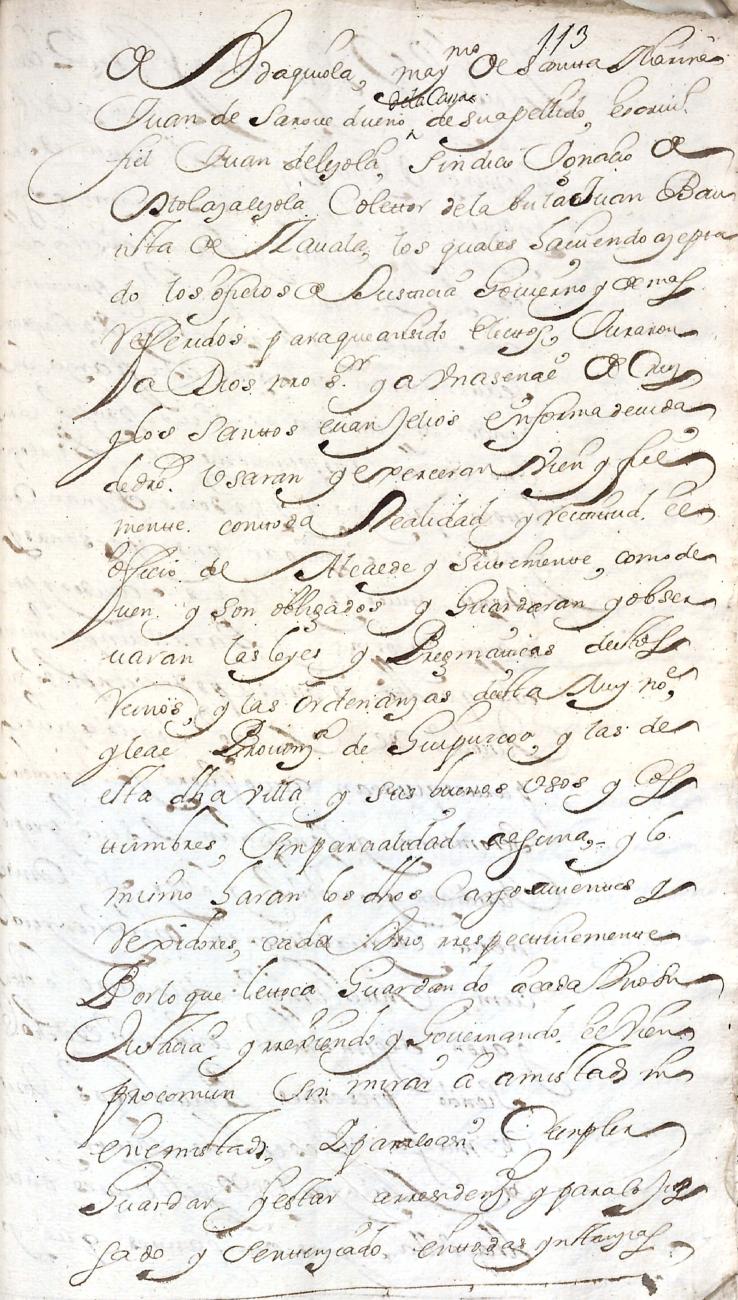 113
de Adaquiola, may mo de Santta Marina
de la Cassa
Juan de Saroue dueño de su apellido, escriu.
fiel Juan de Leyola, Sindico Ignacio de
Colettor de la bula Juan Bau
tista de Zauala, los quales hauiendo azepta
do los ofizios de Justicia Gouierno y demas
referidos para que an sido electos, Juraron
a Dios nro sr y a Una senal de Cruz
y los Santtos euanjelios en forma deuida
de dro Usaran y experceran Vien y fiel
mente con toda Realidad y rectitud el
officio de Alcalde y Su theniente, como de
uen y son obligados y Guardaran y obser
uaran las leyes y Pregmaticas destos
reinos, y las ordenanzas desta Muy noe
y leal Prouinza de Guipuzcoa, y las de
esta dha villa y sus buenos Usos y Cos
tumbres, Sin parcialidad alguna, y lo
mismo haran los dhos Cargo tenientes y
Rexidores, cada Uno respectiuemente
Por lo que le toca Guardando a cada Uno su
Justicia y rrexiendo y Gouernando el Vien
procomun Sin mirar a amistad ni
enemistad, Cumplir
Guardar y estar a rresidenza y para lo Juz
gado y Sentenziado en todas ynstanzias